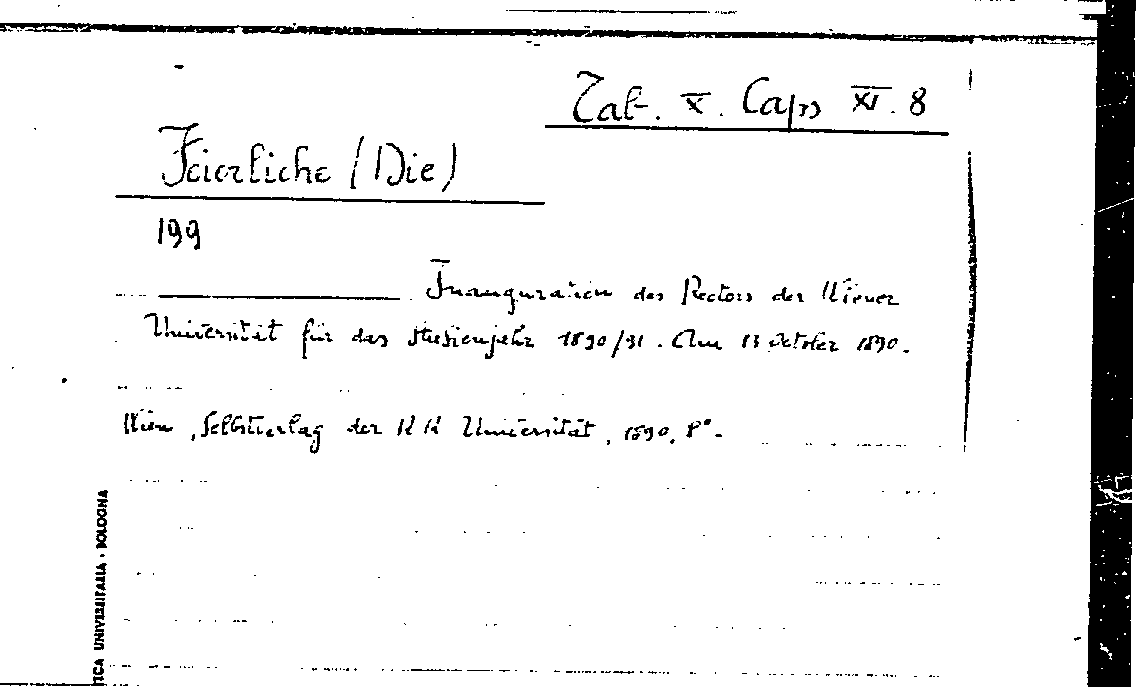 Tab. X. Caps XI. 8
Feierliche (Die)
199
Inauguration des Rectors der Wiener
Universität für das Studienjahr 1890/91. Am 13 October 1890.
Wien, Selbstverlag der K K Universität, 1890, 8°.
TICA UNIVERSITARIA - BOLOGNA